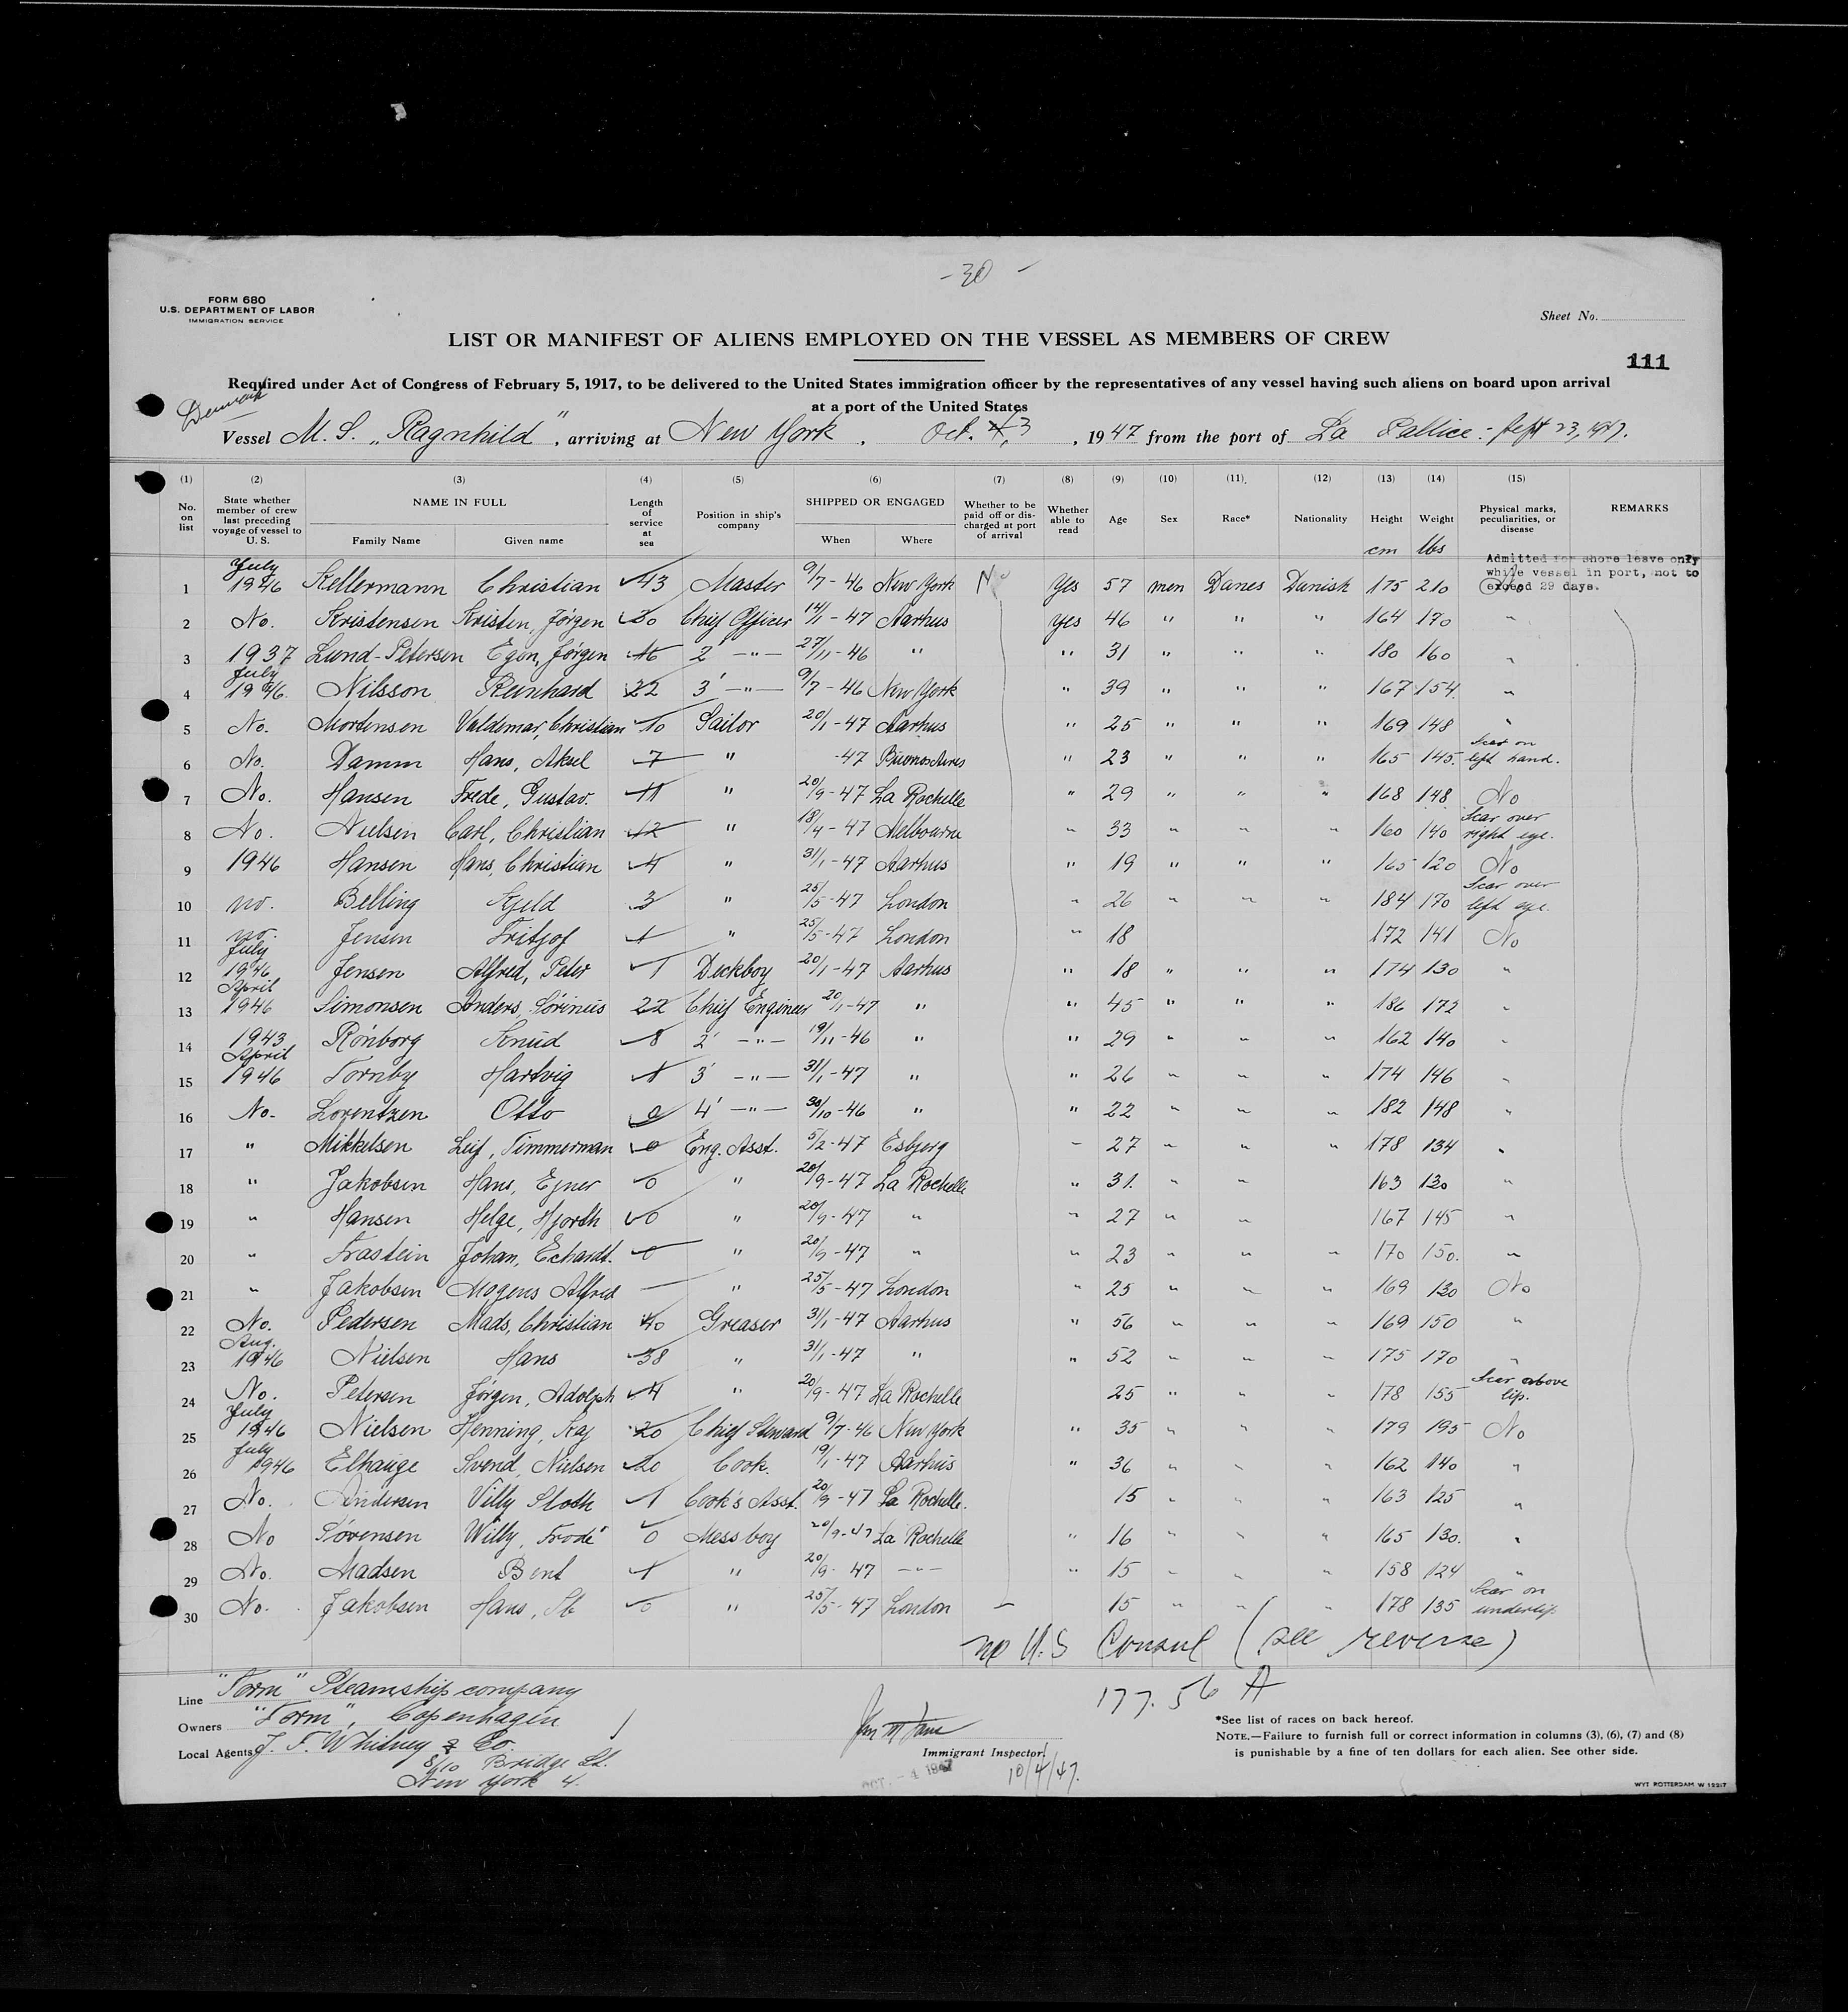 - 30 -
FORM 680
U.S. DEPARTMENT OF LABOR
IMMIGRATION SERVICE
Sheet No.
LIST OR MANIFEST OF ALIENS EMPLOYED ON THE VESSEL AS MEMBERS OF CREW
111
Required under Act of Congress of February 5, 1917, to be delivered to the United States immigration officer by the representatives of any vessel having such aliens on board upon arrival
at a port of the United States
Denmark
Vessel M. S. „Ragnhild", arriving at New York, Oct. 4, 3, 1947 from the port of La Pallice - Sept 23, 1947.
(1) (2) (3) (4) (5) (6) (7) (8) (9) (10) (11) (12) (13) (14) (15)
No. on list State whether member of crew last preceding voyage of vessel to U. S. NAME IN FULL Family Name Given name Length of service at sea Position in ship's company SHIPPED OR ENGAGED When Where Whether to be paid off or discharged at port of arrival Whether able to read Age Sex Race* Nationality Height cm Weight lbs Physical marks, peculiarities, or disease REMARKS
Admitted for shore leave only
while vessel in port, not to
exceed 29 days.
1 July 1946 Kellermann Christian 43 Master 9/7 - 46 New York No Yes 57 men Danes Danish 175 210
2 No. Kristensen Kristen, Jörgen 30 Chief Officer 14/1 - 47 Aarhus yes 46 " " " 164 170 "
3 1937 Lund-Petersen Egon, Jørgen 16 2' -"- 27/11 - 46 " " 31 " " " 180 160 "
4 July 1946. Nilsson Reinhard 22 3' -"- 9/7 - 46 New York " 39 " " " 167 154 "
5 No. Mortensen Valdemar, Christian 10 Sailor 20/1 - 47 Aarhus " 25 " " " 169 148 "
6 No. Damm Hans, Aksel 7 " -47 Buenos Aires " 23 " " " 165 145. Scar on left hand.
7 No. Hansen Frede, Gustav. 11 " 20/9 - 47 La Rochelle " 29 " " " 168 148 No
8 No. Nielsen Carl, Christian 12 " 18/4 - 47 Melbourne " 33 " " " 160 140 Scar over right eye.
9 1946 Hansen Hans, Christian 4 " 31/1 - 47 Aarhus " 19 " " " 165 120 No
10 no. Belling Kjeld 3 " 25/5 - 47 London " 26 " " " 184 170 Scar over left eye.
11 no. Jensen Fritjof 1 " 25/5 - 47 London " 18 172 141 No
12 July 1946 Jensen Alfred, Peter 1 Deckboy 20/1 - 47 Aarhus " 18 " " " 174 130 "
13 April 1946 Simonsen Anders, Sörinus 22 Chief Engineer 20/1 - 47 " " 45 " " " 186 172 "
14 1943 Rönborg Knud 8 2' -"- 19/11 - 46 " " 29 " " " 162 140 "
15 April 1946 Tornby Hartvig 1 3' -"- 31/1 - 47 " " 26 " " " 174 146 "
16 No. Lorentzen Otto 0 4' -"- 30/10 - 46 " " 22 " " " 182 148 "
17 " Mikkelsen Leif, Timmerman 0 Eng. Asst. 5/2 - 47 Esbjerg " 27 " " " 178 134 "
18 " Jakobsen Hans, Ejner 0 " 20/9 - 47 La Rochelle " 31. " " 163 130 "
19 " Hansen Helge, Hjorth 0 " 20/9 - 47 " " 27 " " 167 145 "
20 " Frastein Johan, Echardt. 0 " 20/9 - 47 " " 23 " " " 170 150. "
21 " Jakobsen Mogens Alfred — " 25/5 - 47 London " 25 " " " 169 130 No
22 No. Pedersen Mads, Christian 40 Greaser 31/1 - 47 Aarhus " 56 " " " 169 150 "
23 Aug. 1946 Nielsen Hans 38 " 31/1 - 47 " " 52 " " " 175 170 "
24 No. Petersen Jørgen, Adolph 4 " 20/9 - 47 La Rochelle 25 " " " 178 155 Scar above lip.
25 July 1946 Nielsen Henning, Kaj 20 Chief Steward 9/7 - 46 New York " 35 " " " 179 195 No
26 July 1946 Elhauge Svend, Nielsen 20 Cook. 19/1 - 47 Aarhus " 36 " " " 162 140 "
27 No. Andersen Villy Sloth 1 Cook's Asst. 20/9 - 47 La Rochelle. 15 " " " 163 125 "
28 No Sørensen Willy, Frode 0 Messboy 20/9 - 47 La Rochelle " 16 " " " 165 130. "
29 No. Madsen Bent 1 " 20/9 - 47 -"- " 15 " " " 158 124 "
30 No. Jakobsen Hans, Ib 0 " 25/5 - 47 London 15 " " " 178 135 Scar on underlip
no U.S Consul (see reverse)
177.56 A
Line "Torm" Steamship company
Owners "Torm", Copenhagen
Local Agents J. F. Whitney & Co.
8/10 Bridge St.
New York 4.
Immigrant Inspector.
OCT. - 4 1947
10/4/47.
*See list of races on back hereof.
NOTE.—Failure to furnish full or correct information in columns (3), (6), (7) and (8)
is punishable by a fine of ten dollars for each alien. See other side.
WYT ROTTERDAM W 12217